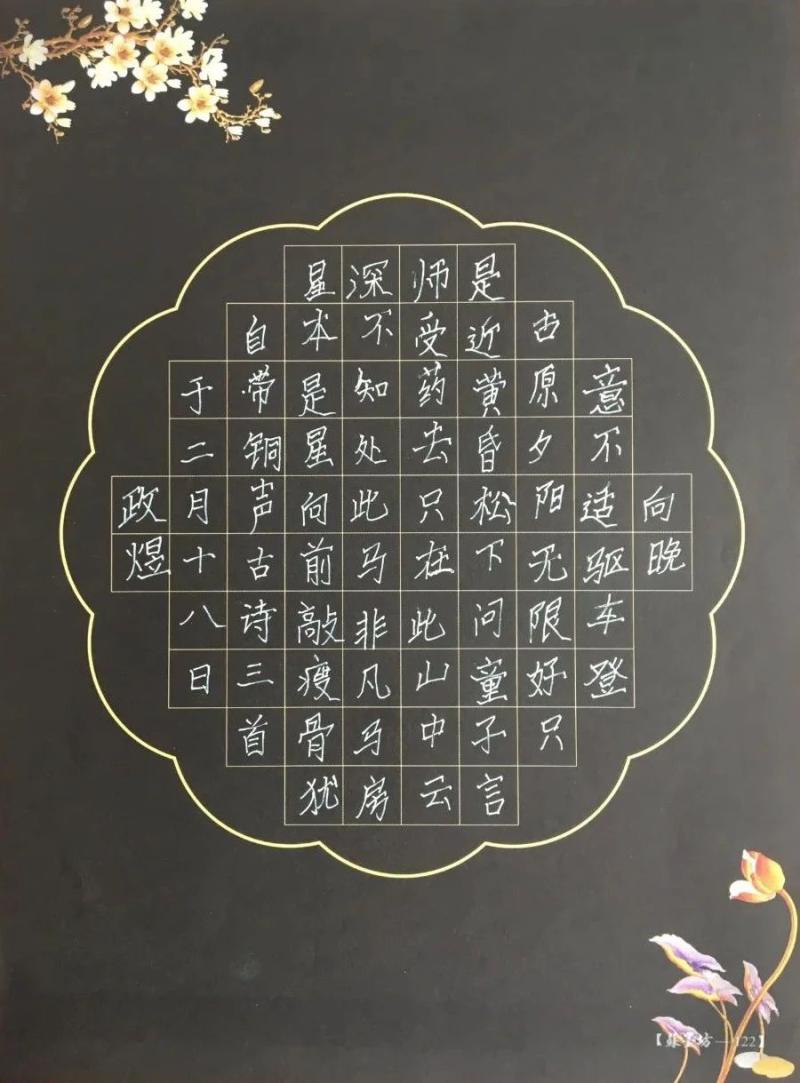 向晚
意不适驱车登
古原夕阳无限好只
是近黄昏松下问童子言
师受药去只在此山中云
深不知处此马非凡马房
星本是星向前敲瘦骨犹
自带铜声古诗三首
于二月十八日
政煜
坊—122】